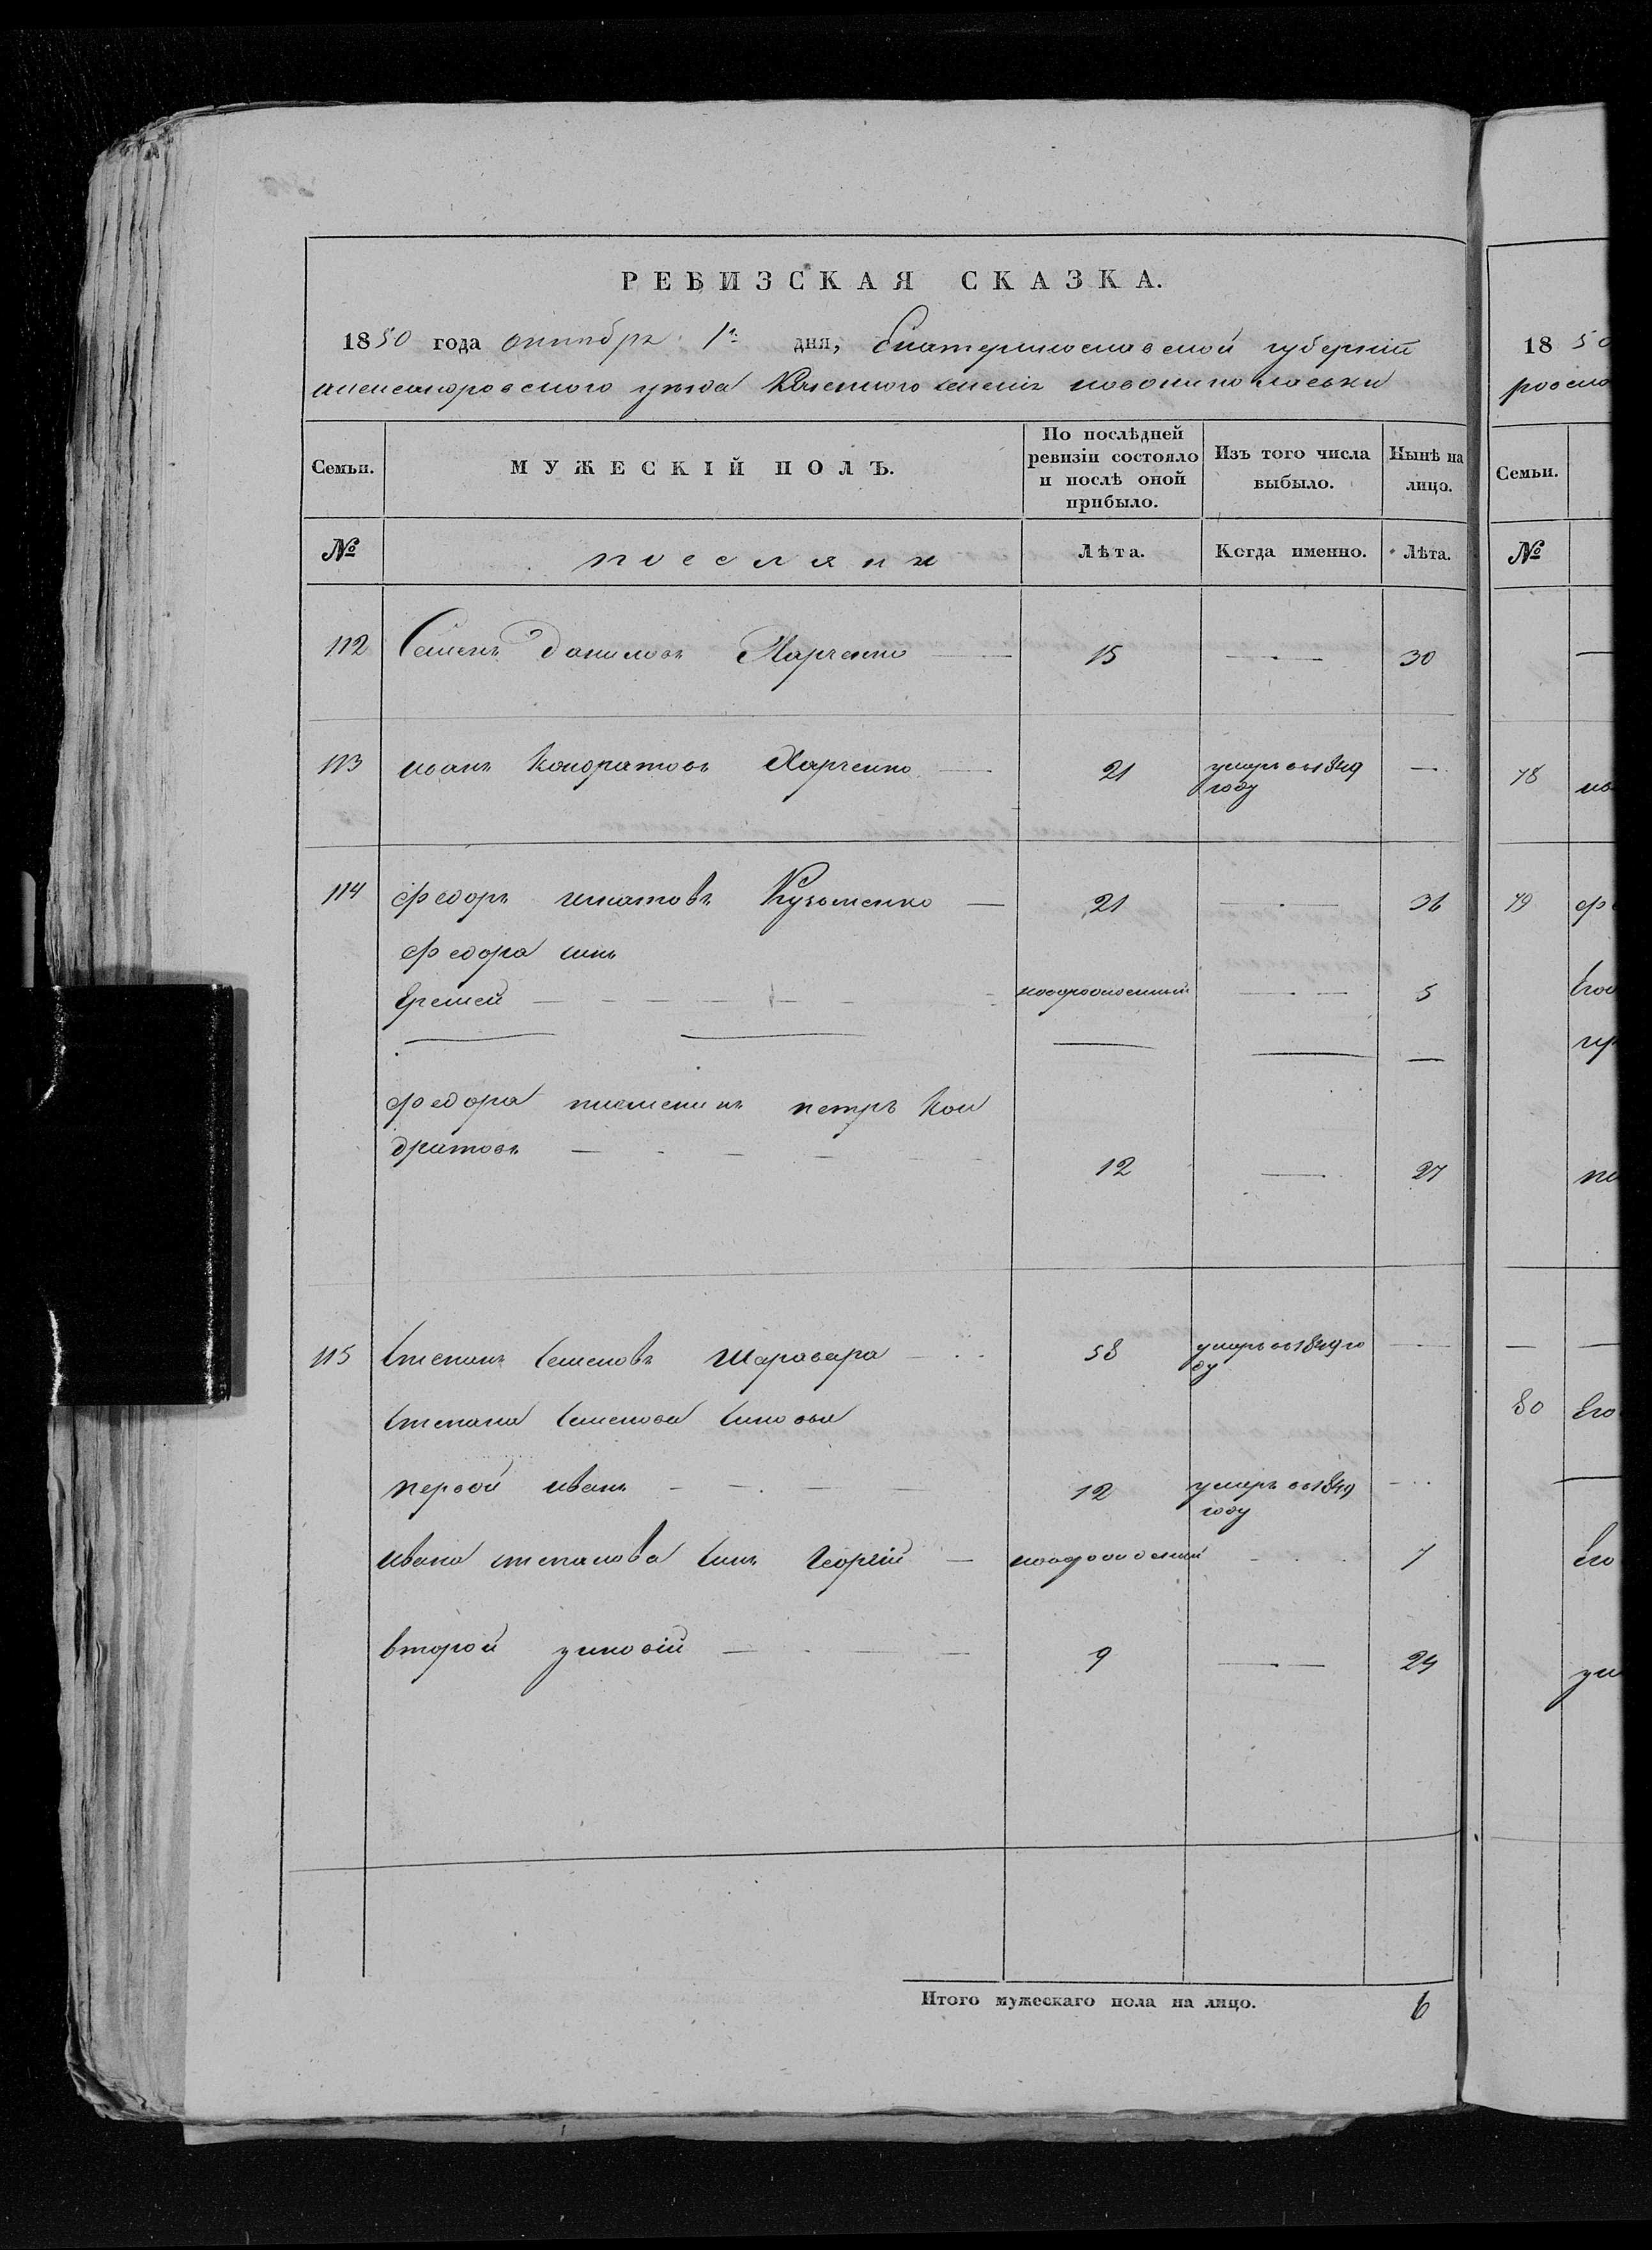 РЕВИЗСКАЯ СКАЗКА.
1850 года октября 1го дня, Екатеринославской губерніи
александровского уезда Казенного селенія новониколаевки
Семьи. МУЖЕСКІЙ ПОЛЪ. По послѣдней ревизіи состояло и послѣ оной прибыло. Изъ того числа выбыло. Нынѣ на лицо.
№ поселянъ Лѣта. Когда именно. Лѣта.
112 Семенъ Даниловъ Харченко 15 — 30
113 иванъ Кондратовъ Харченко 21 умеръ въ 1849 году —
114 федоръ игнатовъ Кузьменко 21 — 36
федора синъ
Еремей новорожденный — 5
федора племеникъ петръ Кон
дратовъ 12 — 27
115 Степанъ Семеновъ Шаравара 58 умеръ въ 1849 го
ду
Степана Семенова Синовья
первой иванъ 12 умеръ въ 1849
году
ивана степанова Синъ Георгій новорожденный 7
второй зиновій 9 — 24
Итого мужескаго пола на лицо. 6
1850
ровско
Семьи.
№
78
79
80